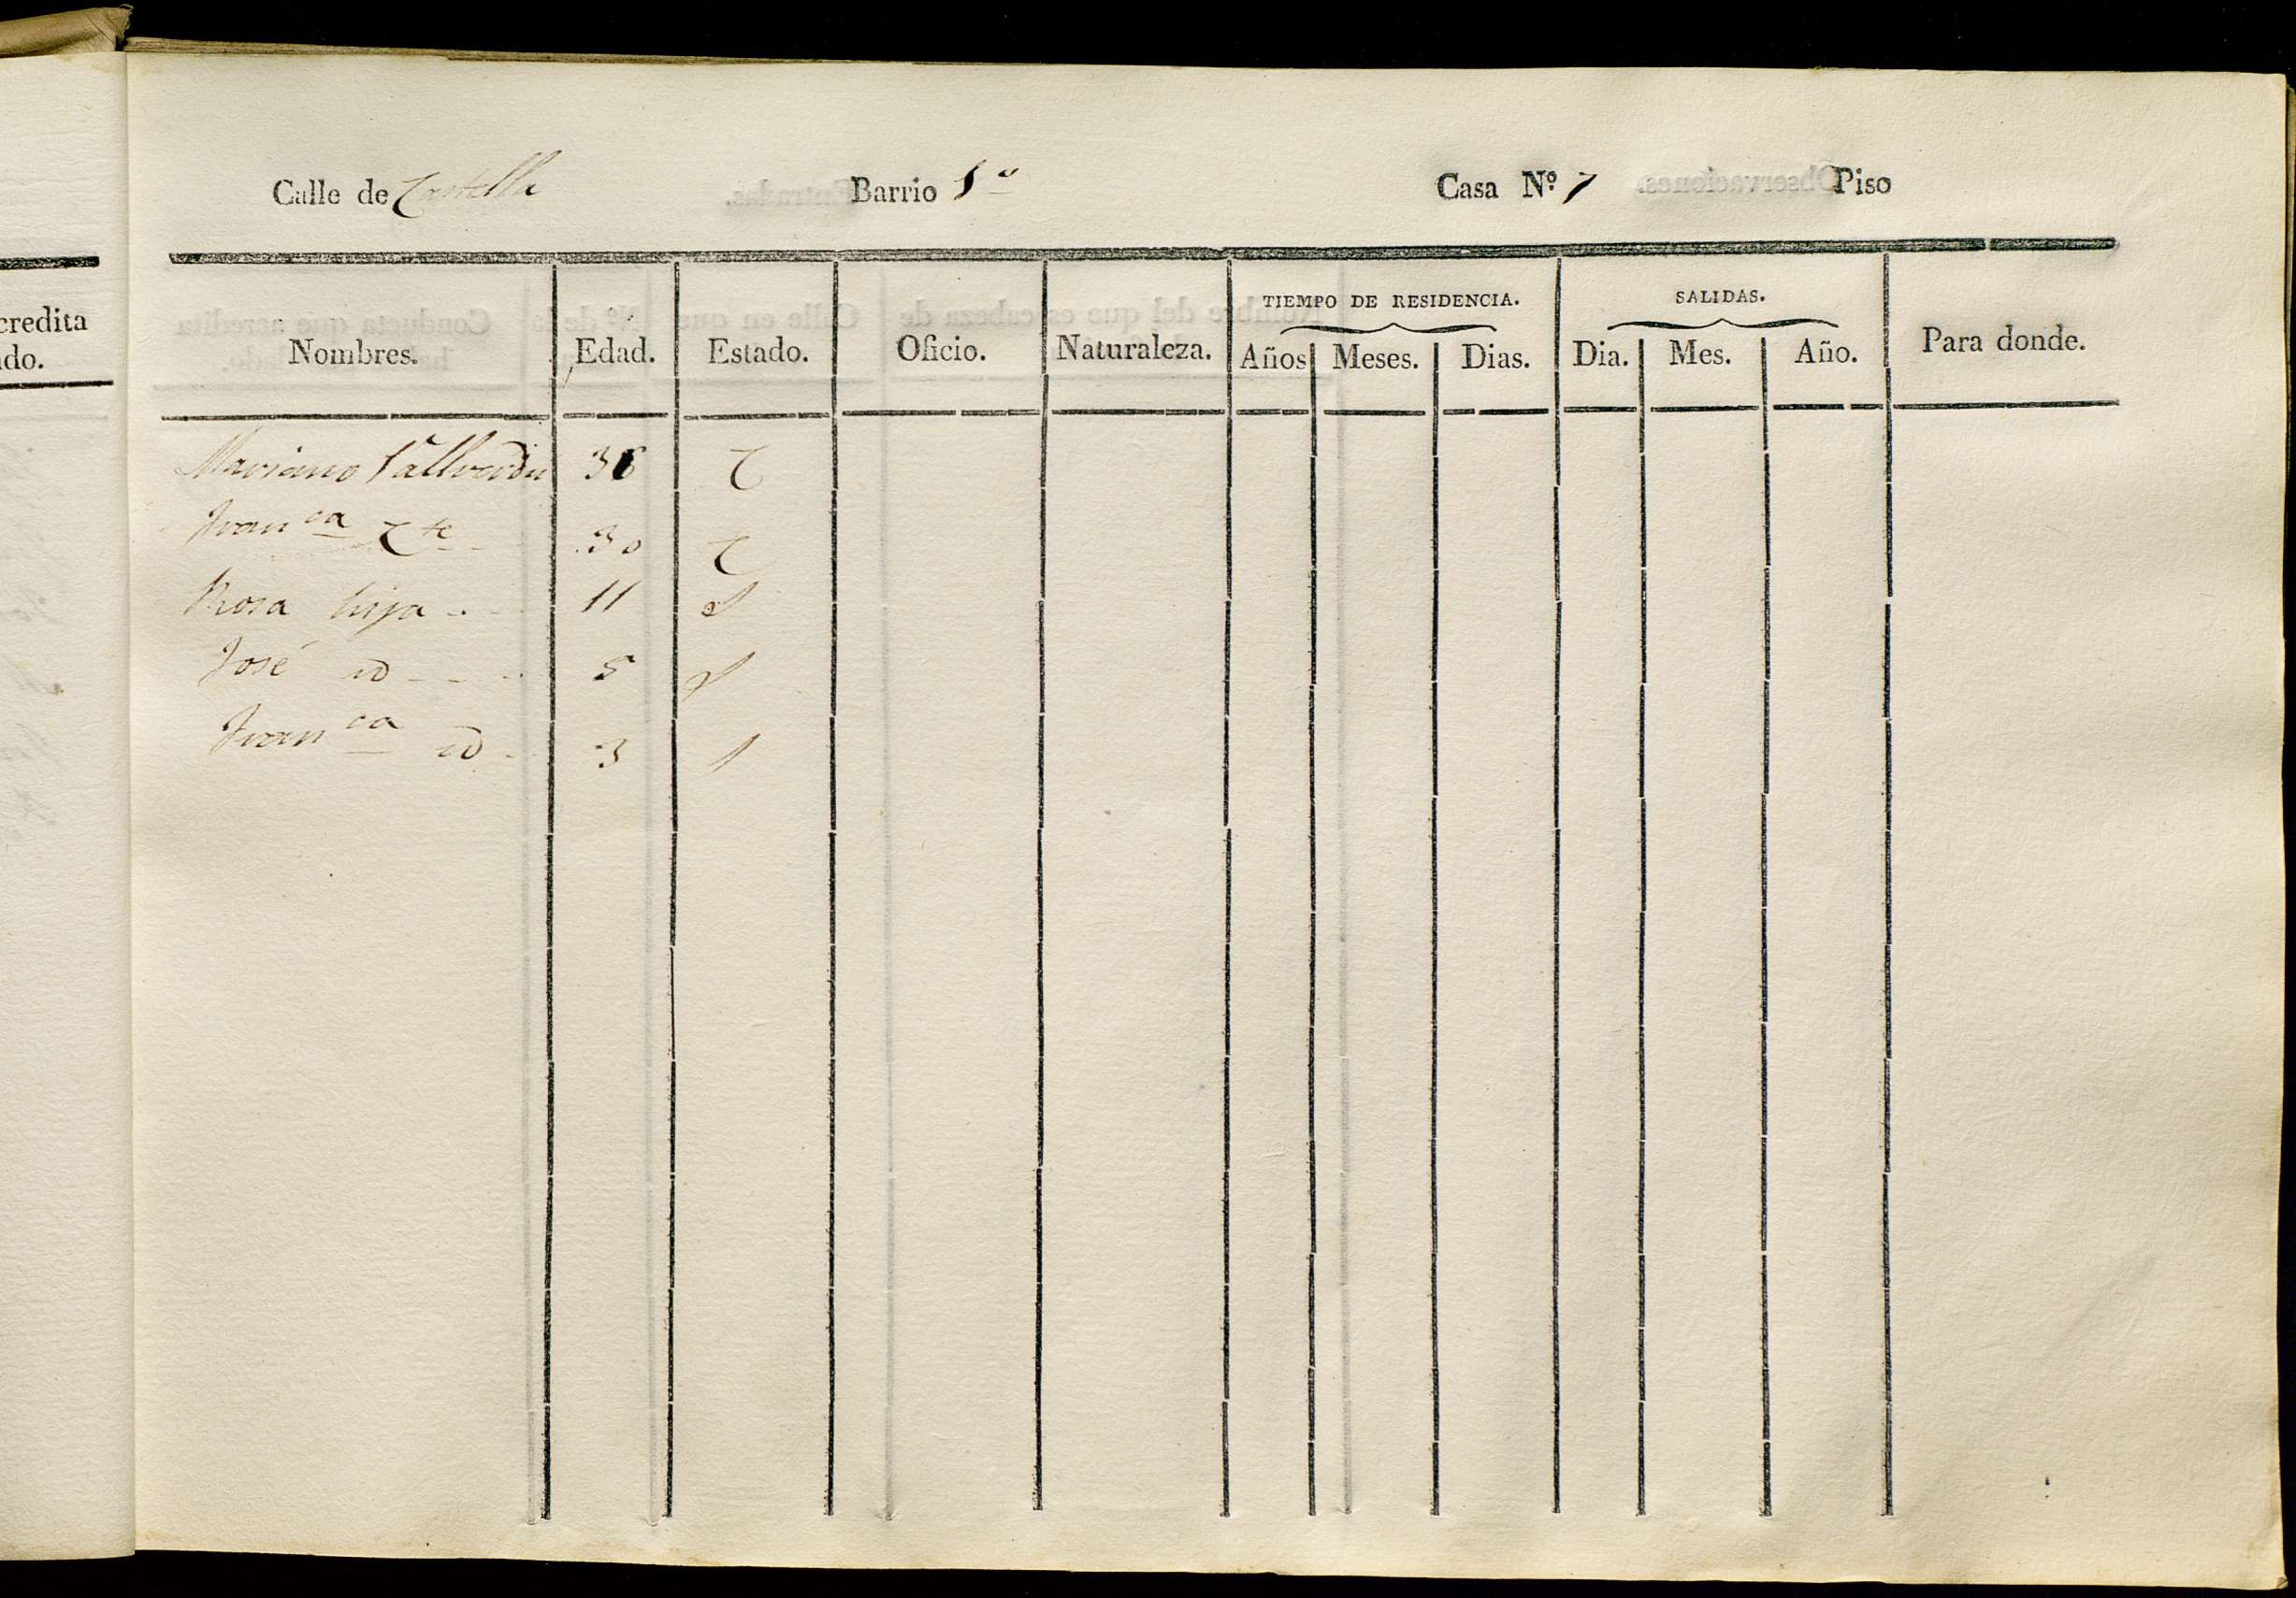 credita
do.
Calle de Castella Barrio 1º Casa Nº 7 Piso
Nombres. Edad. Estado. Oficio. Naturaleza. TIEMPO DE RESIDENCIA. Años Meses. Dias. SALIDAS. Dia. Mes. Año. Para donde.
Mariano Vallverdu 36 C
Franca Cte 30 C
Rosa hija 11 S
José id 5 S
Franca id 3 S